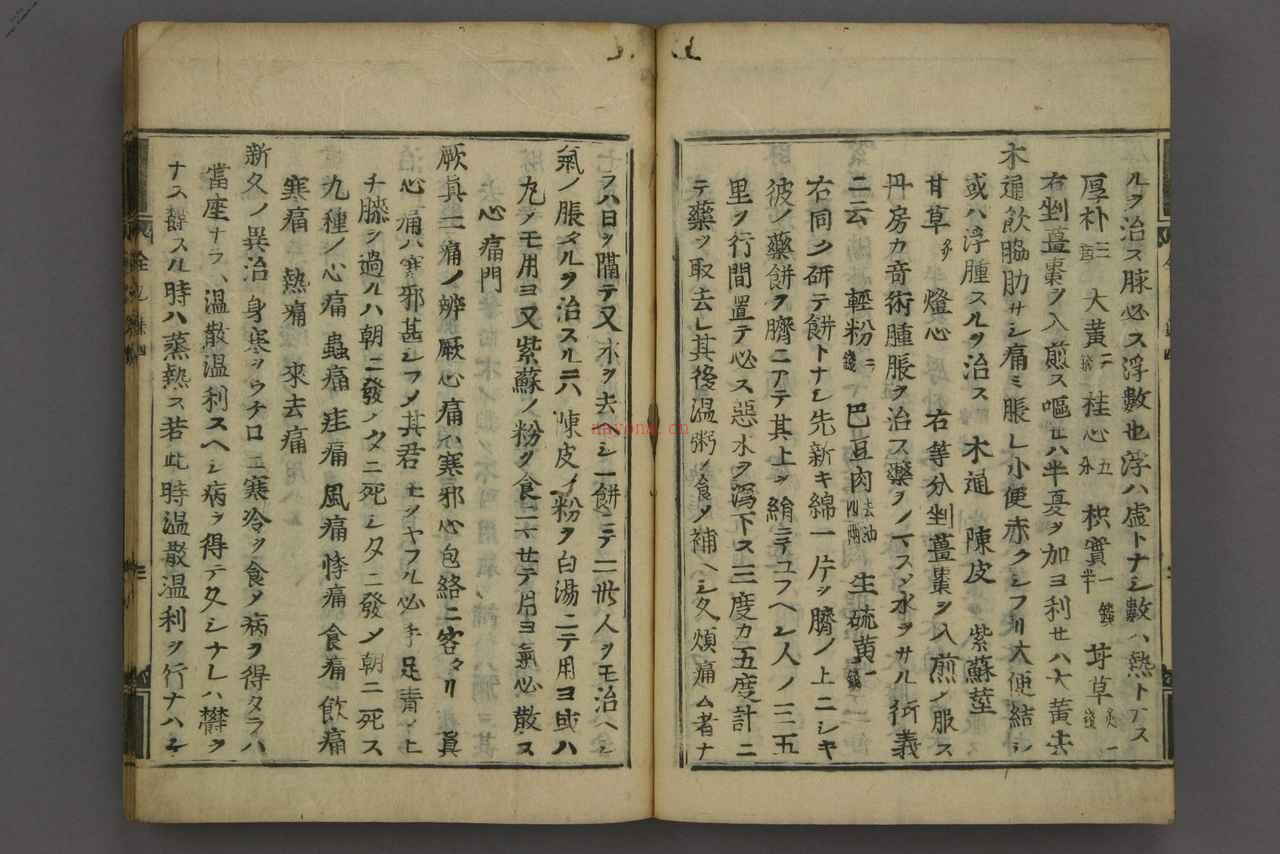 ルヲ治ス脉必ス浮數也浮ハ虛トナシ數ハ熱トナス
厚朴 三 大黃 二 桂心 五分 枳實 一 半 甘草 炙 一
右剉薑棗ヲ入煎ス嘔セハ半夏ヲ加ヨ利セハ大黃去
木通飲脇肋サシ痛ミ脹レ小便赤クシフリ大便結シ
或ハ浮腫スルヲ治ス 木通 陳皮 紫蘇莖
甘草 燈心 右等分剉薑棗ヲ入煎ノ服ス
丹房カ音術腫脹ヲ治ス藥ヲノマスメ水ヲサル術義
ニ云 輕粉 二 巴豆肉 去油四兩 生硫黃 一
右同ク研テ餅トナシ先新キ綿一片ヲ臍ノ上ニシキ
彼ノ藥餅ヲ臍ニアテ其上ヲ絹ニテユフヘシ人ノ三五
里ヲ行間置テ必ス惡水ヲ瀉下ス三度カ五度計ニ
テ藥ヲ取去レ其後温粥ノ食ヲ補ヘシ久煩痛ム者ナ
ラハ日ヲ隔テ又水ヲ去シ一餅ニテ二卅人ヲモ治ヘシ
氣ノ脹タルヲ治スルニハ陳皮ノ粉ヲ白湯ニテ用ヨ或ハ
丸メモ用ヨ又紫蘇ノ粉ヲ食ニマセテ用ヨ氣必散ス
心痛門
厥眞二痛ノ辨厥心痛ハ寒邪心包絡ニ客タリ眞
心痛ハ寒邪甚シフメ其君ヲソヤフル必手足青メヒ
チ膝ヲ過ルハ朝ニ發メタニ死シタニ發メ朝ニ死ス
九種ノ心痛 蟲痛 疰痛 風痛 悸痛 食痛 飲痛
寒痛 熱痛 來去痛
新久ノ異治 身寒ヲウケ口ニ寒冷ヲ食メ病ヲ得タラハ
當座ナラハ温散温利スヘシ病ヲ得テ久シナレハ欝ヲ
ナス欝スル時ハ蒸熱ス若此時温散温利ヲ行ナハシ
nayona.cn